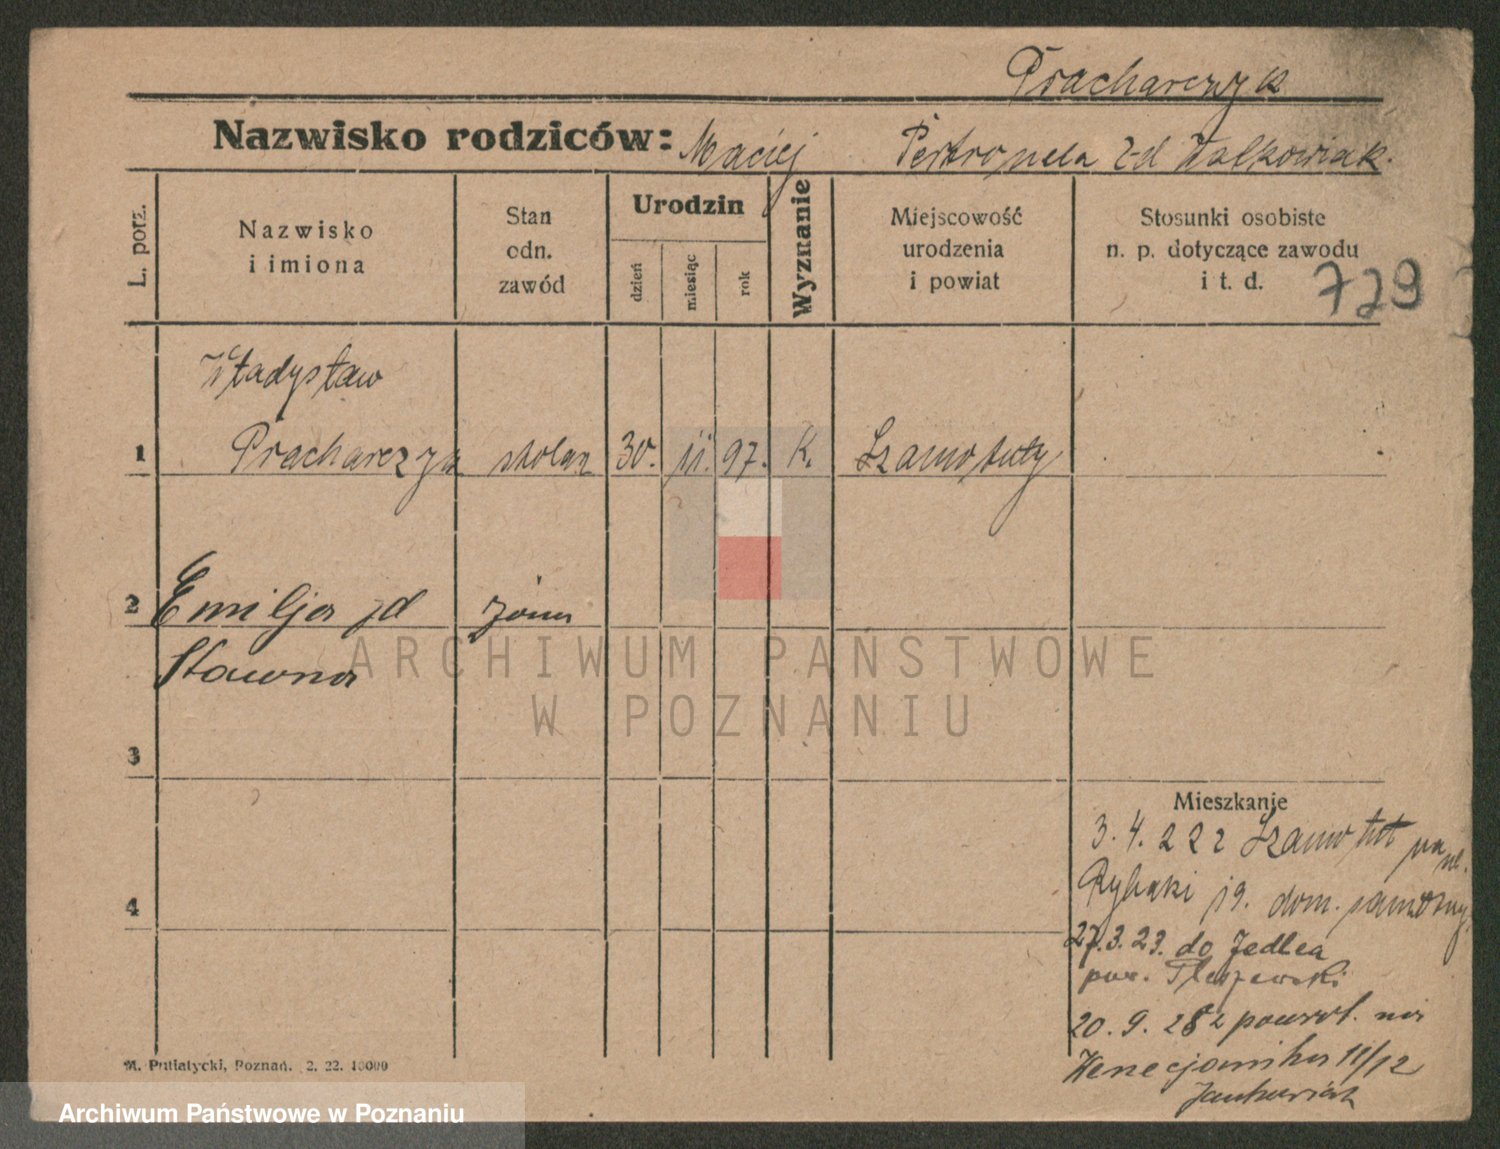 Pracharczyk
Nazwisko rodziców: Maciej Petronela z-d Walkowiak.
L. porz.
Nazwisko
i imiona
Stan
odn.
zawód
Urodzin
dzień
miesiąc
rok
Wyznanie
Miejscowość
urodzenia
i powiat
Stosunki osobiste
n. p. dotyczące zawodu
i t. d.
729
Władysław
1 Pracharczyk stolarz 30. 11. 97. K. Szamotuły
2 Emilja zd żona
Sławna
3
4
Mieszkanie
3. 4. 22 z Szamotuł na ul.
Rybaki 19. dom.
27.3.23. do Jedlca
pow. Pleszewski
20. 9. 28 z powrot. na
Wenecjańska 11/12
Jankowiak
M. Putiatycki, Poznań. 2. 22. 10000
ARCHIWUM PAŃSTWOWE
W POZNANIU
Archiwum Państwowe w Poznaniu